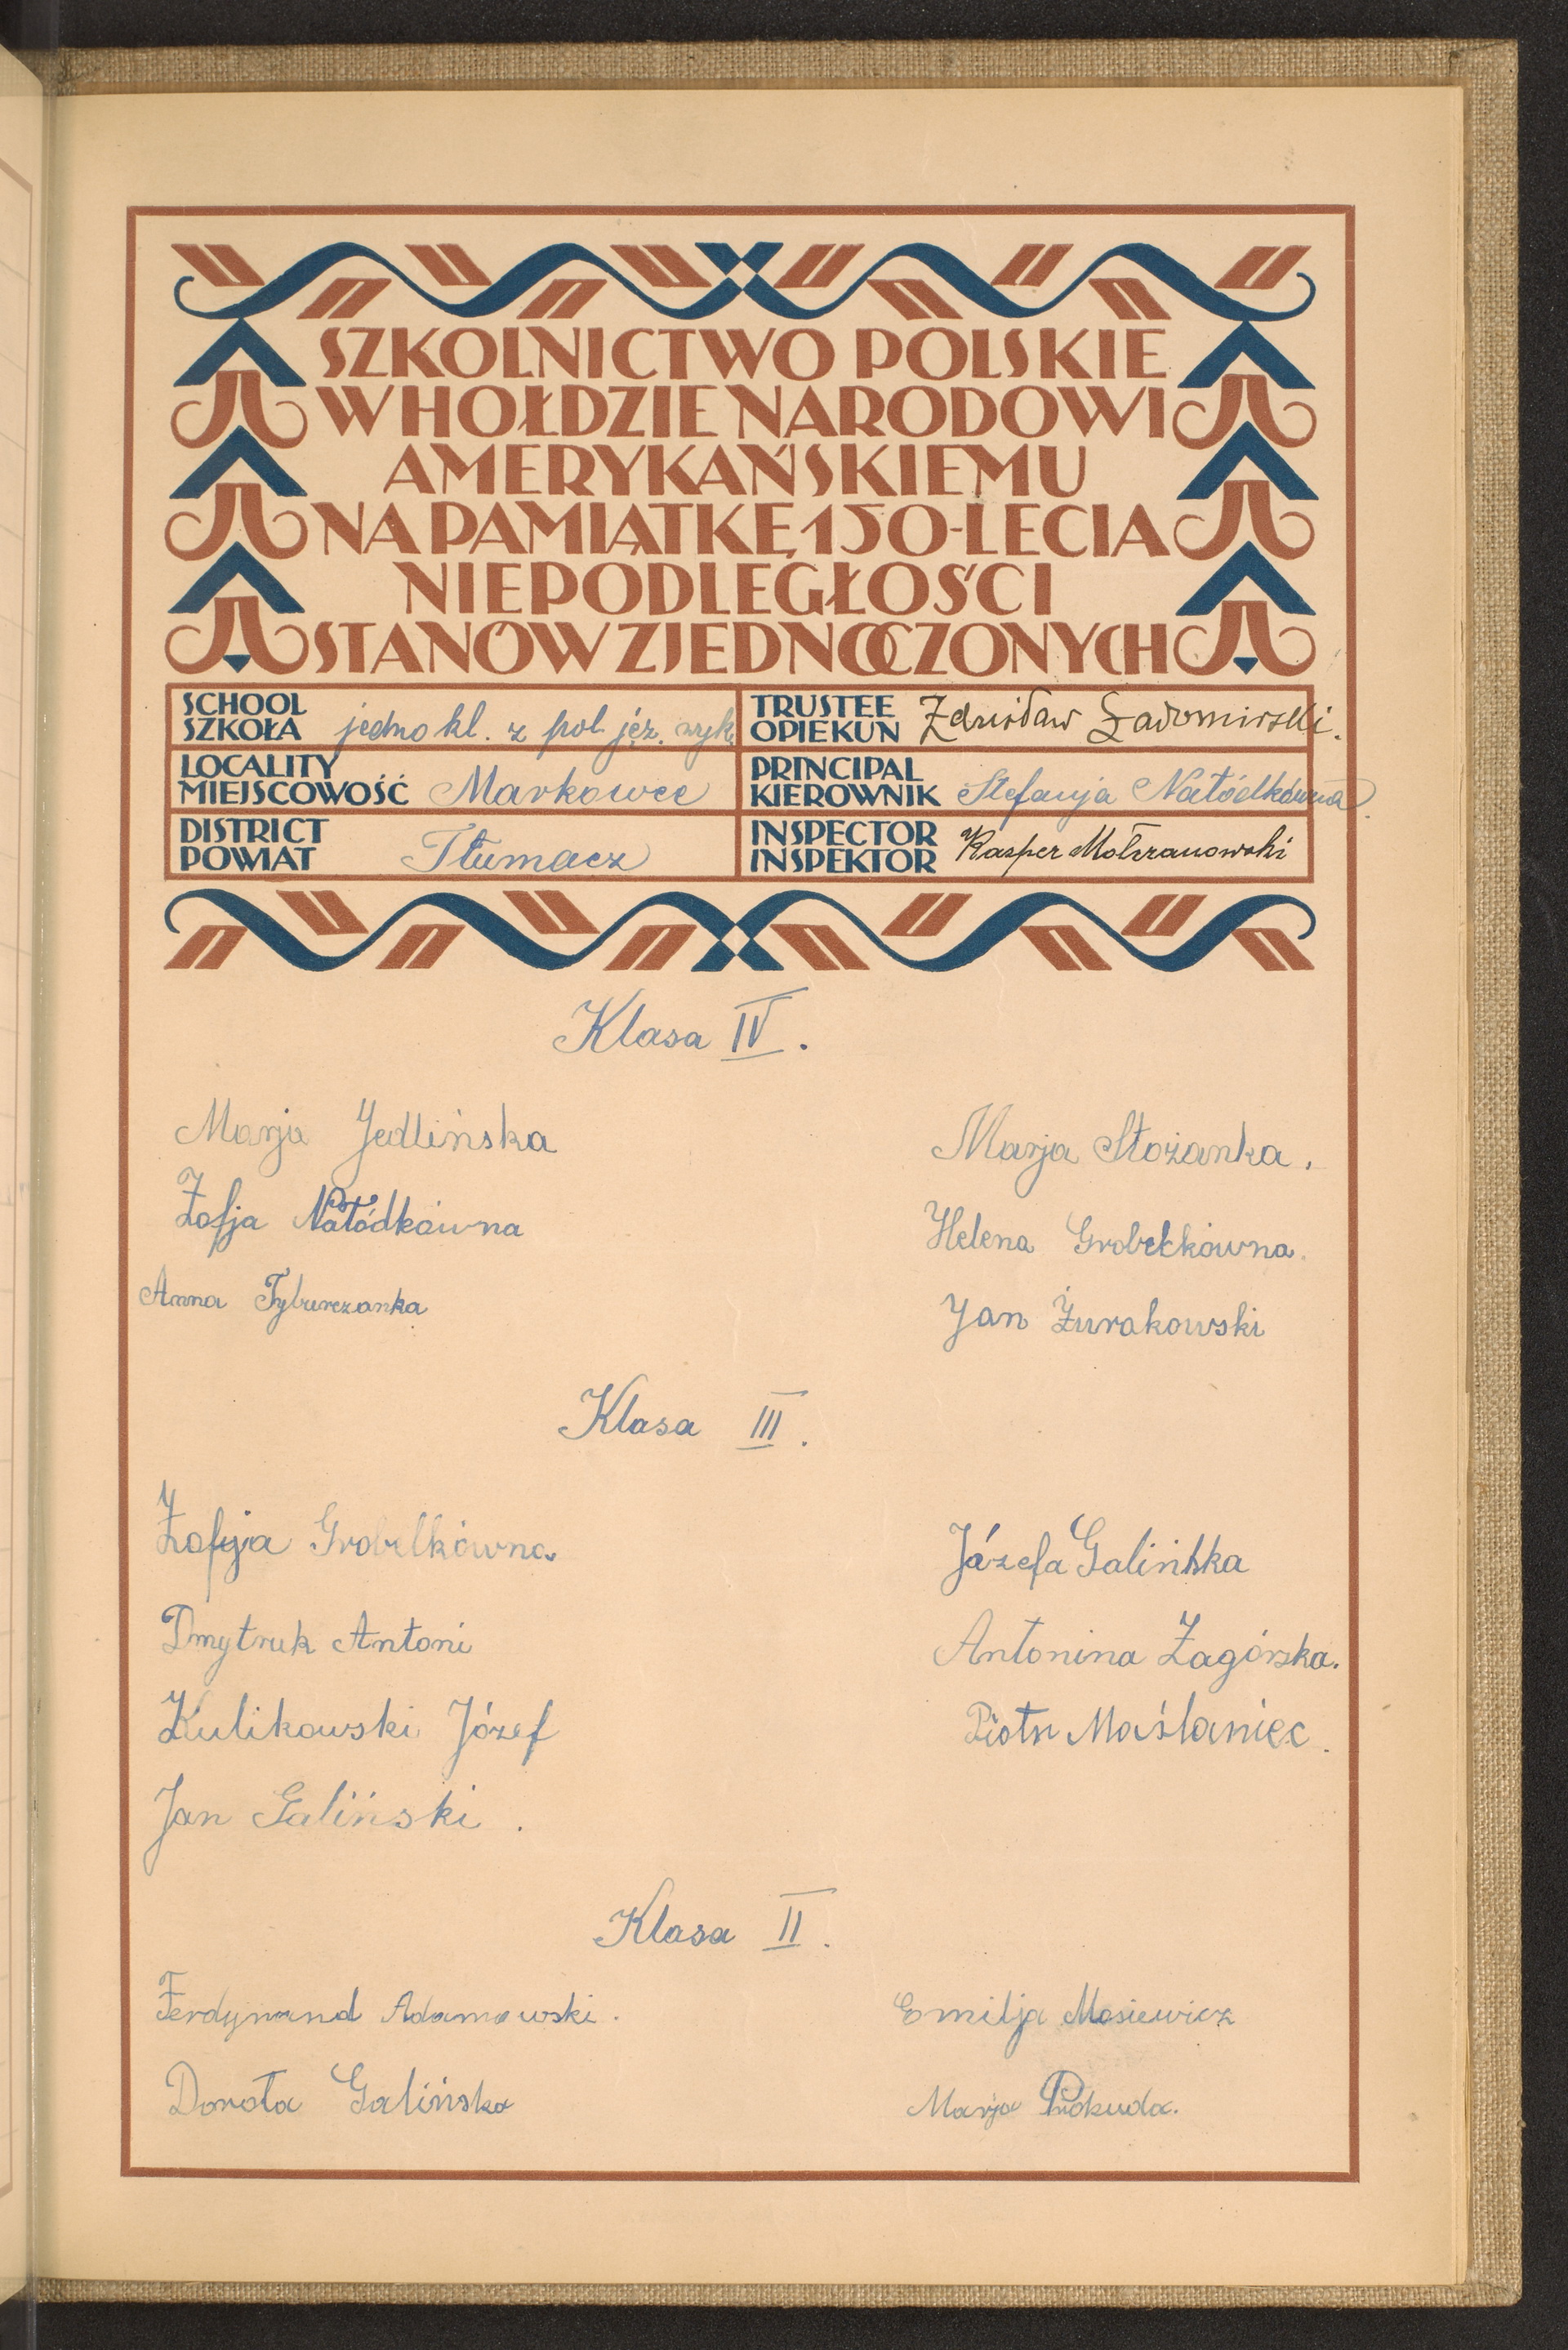 SZKOLNICTWO POLSKIE
W HOŁDZIE NARODOWI
AMERYKAŃSKIEMU
NA PAMIĄTKĘ 150-LECIA
NIEPODLEGŁOŚCI
STANÓW ZJEDNOCZONYCH
SCHOOL
SZKOŁA jedno kl. z pol. jęz. wykł
TRUSTEE
OPIEKUN Zdzisław Sadomirski.
LOCALITY
MIEJSCOWOŚĆ Markowce
PRINCIPAL
KIEROWNIK Stefanja Natódkówna
DISTRICT
POWIAT Tłumacz
INSPECTOR
INSPEKTOR Kasper Mołczanowski
Klasa IV.
Marja Jedlińska
Zofja Natódkówna
Anna Tyburczanka
Marja Stożanka.
Helena Grobelkówna.
Jan Żurakowski
Klasa III.
Zofja Grobelkówna.
Dmytruk Antoni
Kulikowski Józef
Jan Galiński.
Józefa Galińska
Antonina Zagórska.
Piotr Maślaniec.
Klasa II.
Ferdynand Adamowski.
Dorota Galińska
Emilja Mosiewicz
Marja Prokuda.